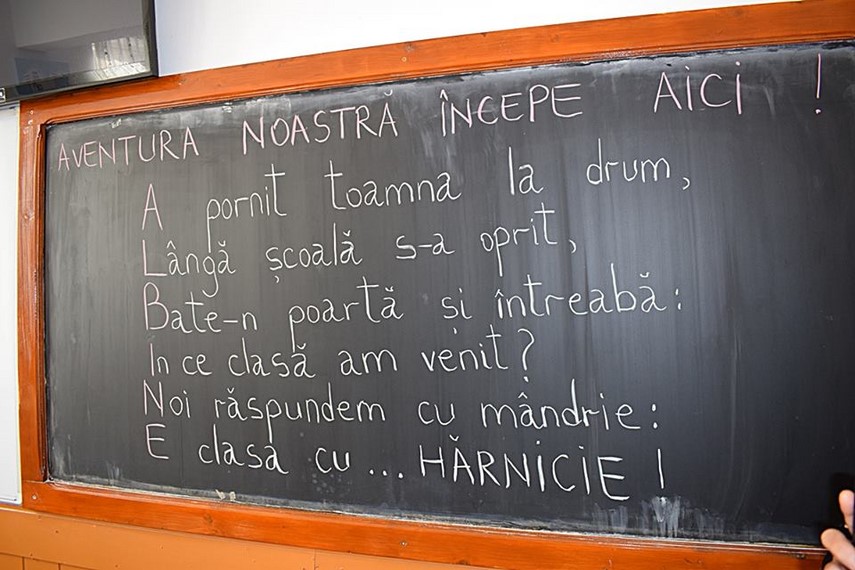 AVENTURA NOASTRĂ ÎNCEPE AICI !
A pornit toamna la drum,
Lângă școală s-a oprit,
Bate-n poartă și întreabă:
In ce clasă am venit?
Noi răspundem cu mândrie:
E clasa cu ... HĂRNICIE !